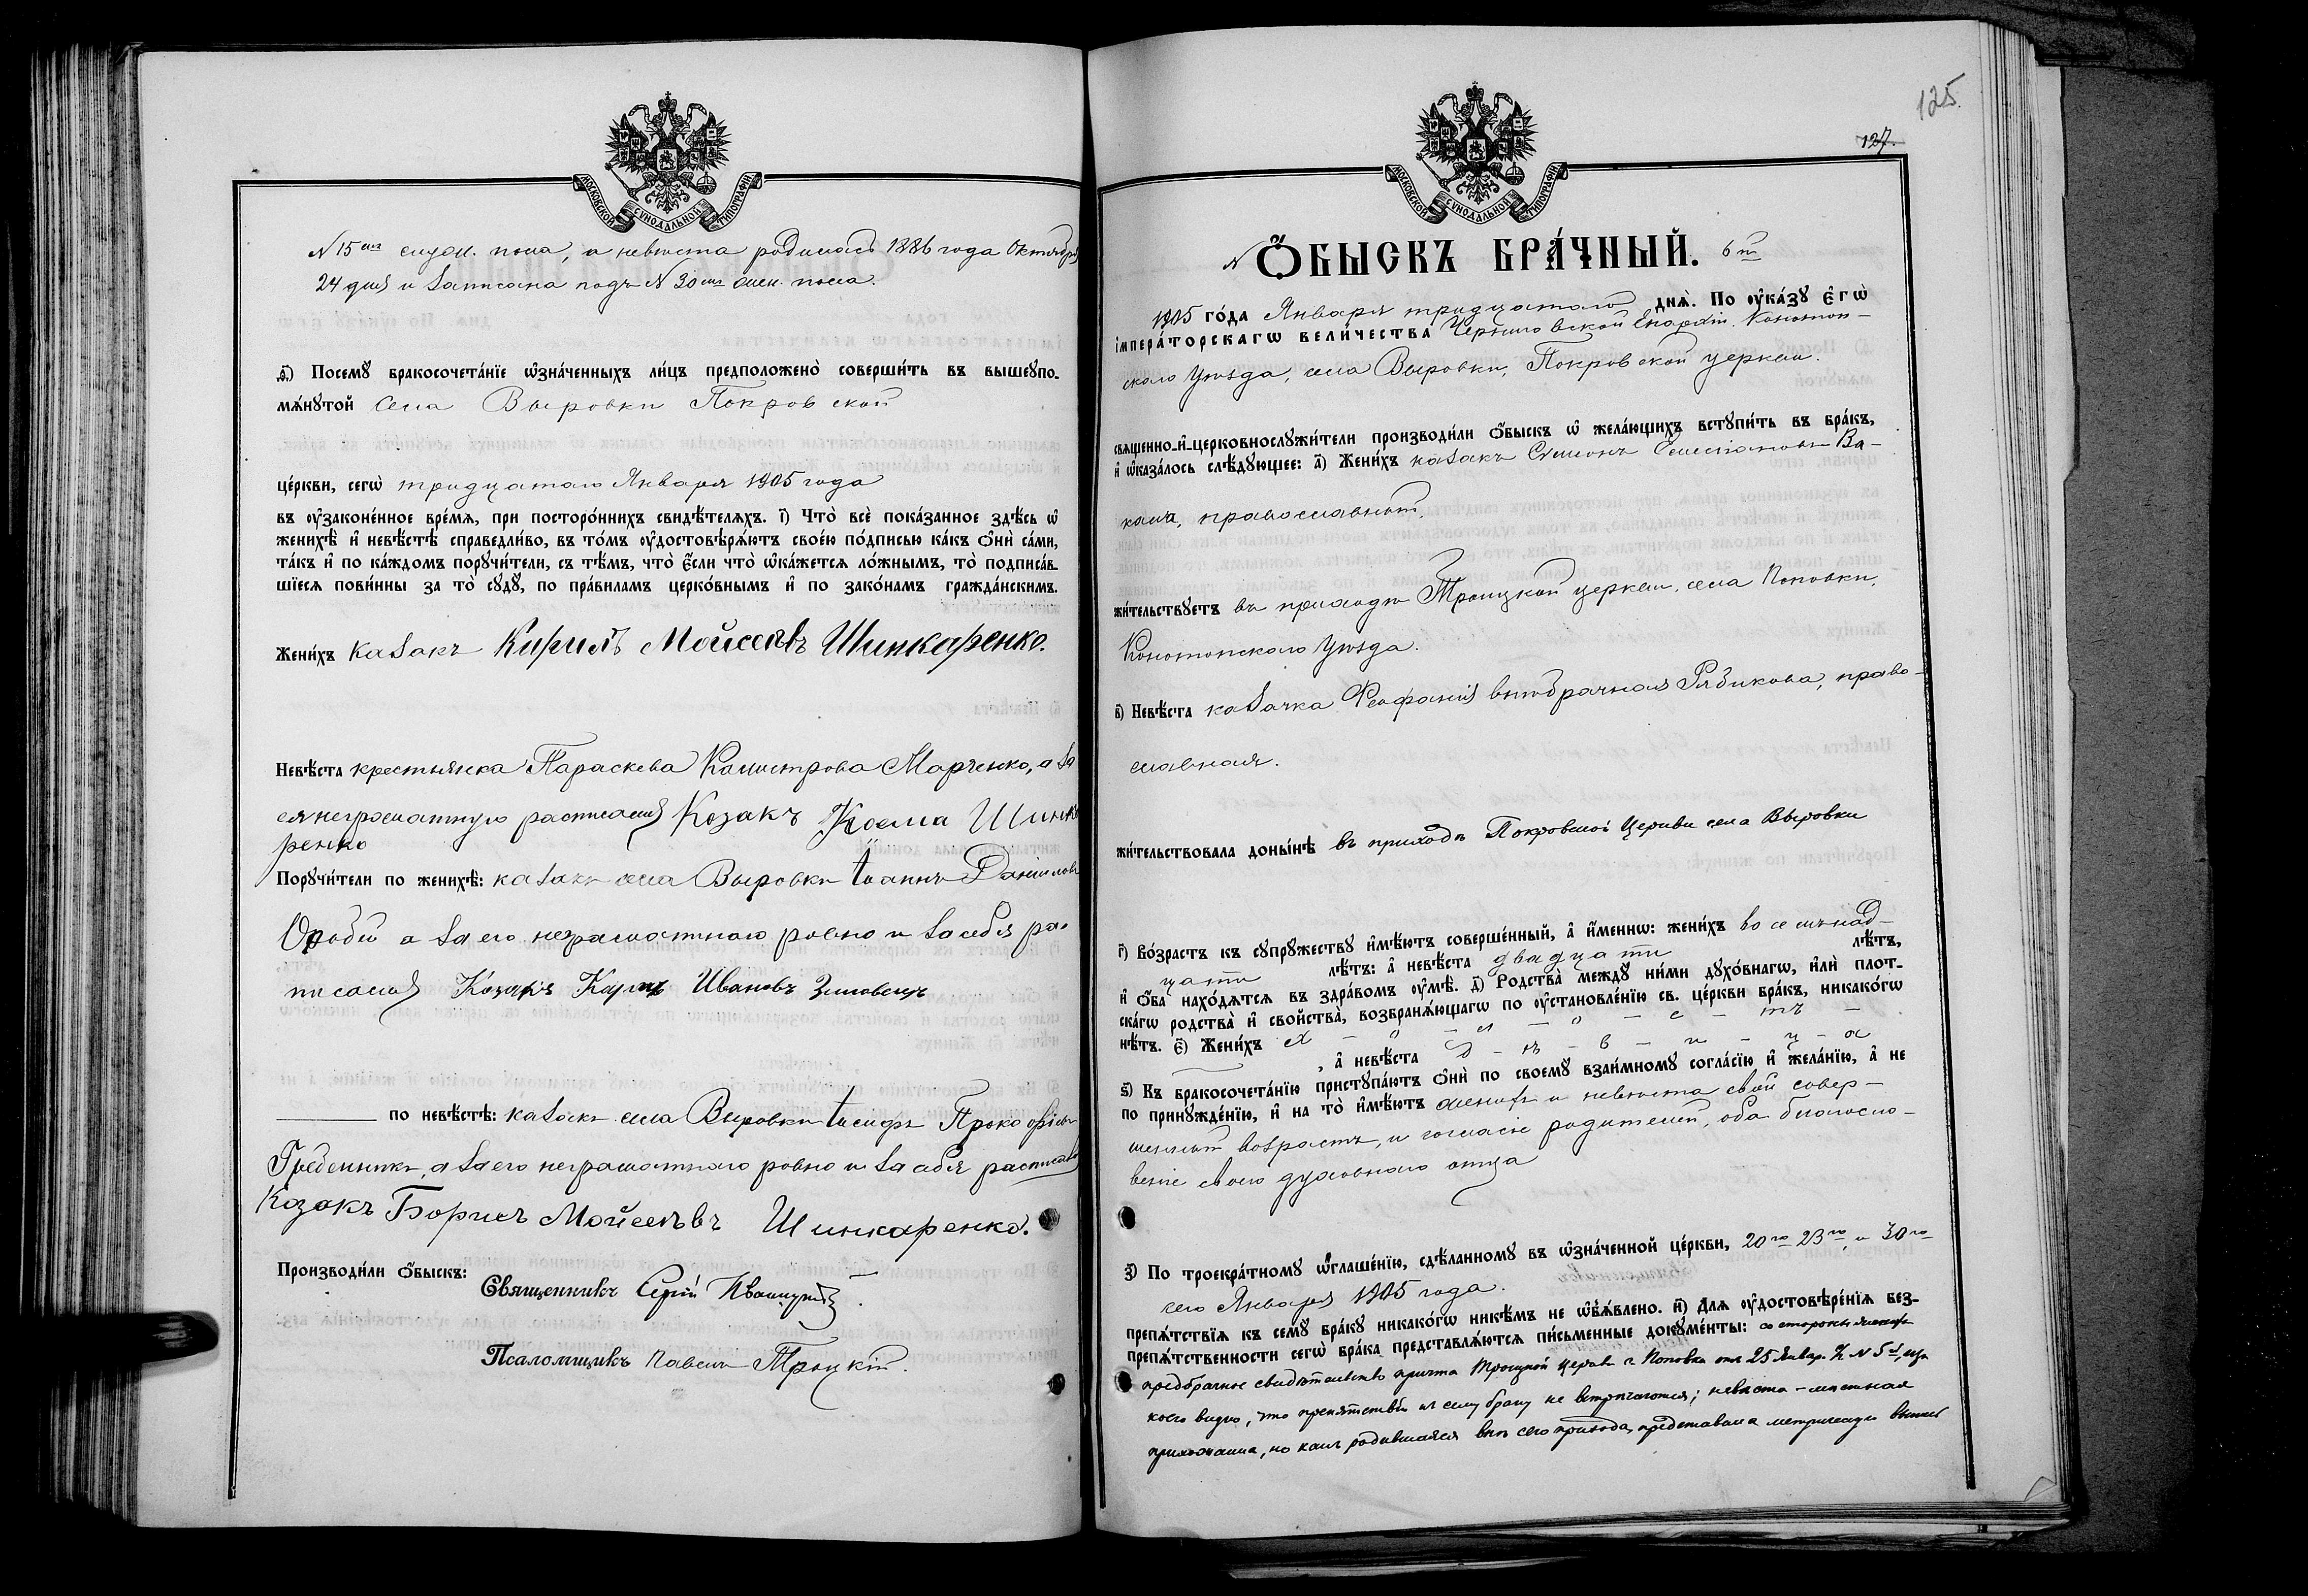 МОСКОВСКОЙ СѴНОДАЛЬНОЙ ТИПОГРАФІИ
N 15 муж. пола, а невѣста родилась 1886 года Октября
24 дня и записана подъ N 30 жен. пола.
д҃) Посемꙋ бракосочета́нїе ѡ҆зна́ченныхъ ли́цъ предположено̀ соверши́ть въ вышеꙋпо-
мѧ́нꙋтой села Выровки Покровской
це́ркви, сегѡ̀ тридцатаго Января 1905 года
въ ᲂу҆законе́нное вре́мѧ, при посторо́ннихъ свидѣ́телѧхъ. і҃) Что̀ всѐ пока́занное здѣ́сь ѡ҆
женихѣ̀ и҆ невѣ́стѣ справедли́во, въ то́мъ ᲂу҆достовѣрѧ́ютъ свое́ю по́дписью ка́къ ѻ҆нѝ са́ми,
та́къ и҆ по ка́ждомъ порꙋчи́тели, съ тѣ́мъ, что̀ є҆́сли что̀ ѡ҆ка́жетсѧ ло́жнымъ, то̀ подписа́в-
шїесѧ пови́нны за то̀ сꙋдꙋ̀, по пра́виламъ церко́внымъ и҆ по зако́намъ гражда́нскимъ.
Жени́хъ казакъ Кирилъ Мойсеевъ Шинкаренко.
Невѣ́ста крестьянка Параскева Калистрова Марченко, а за
ея неграмотную росписался Козакъ Козма Шинка
ренко
Порꙋчи́тели по женихѣ̀: казакъ села Выровки Іоаннъ Даніиловъ
а за его неграмотнаго ровно и за себя рас
писался Козакъ Карпъ Ивановъ Зиновецъ
по невѣ́стѣ: казакъ села Выровки Іосифъ Прокофіевъ
Гребенникъ, а за его неграмотнаго ровно и за себя расписался
Козакъ Борисъ Мойсеевъ Шинкаренко.
Производи́ли ѻ҆́быскъ: Священникъ Сергій
Псаломщикъ Павелъ Троцкій.
125.
127.
МОСКОВСКОЙ СѴНОДАЛЬНОЙ ТИПОГРАФІИ
N Ѻ҆́БЫСКЪ БРА́ЧНЫЙ. 6й
1905 го́да Января тридцатаго днѧ̀. По ᲂу҆ка́зꙋ є҆гѡ̀
і҆мпера́торскагѡ вели́чества Черниговской Епархіи Конотоп-
скаго Уѣзда, села Выровки, Покровской церкви.
свѧщенно-и҆-церковнослꙋжи́тели производи́ли ѻ҆́быскъ ѡ҆ жела́ющихъ встꙋпи́ть въ бра́къ,
и҆ ѡ҆каза́лось слѣ́дꙋющее: а҃) Жени́хъ казакъ Сѵмеонъ Ва-
кала, православный,
жи́тельствꙋетъ въ приходѣ Троицкой церкви, села Поповки,
Конотопскаго Уѣзда.
в҃) Невѣ́ста казачка Феофанія внѣбрачная Рябикова, право-
славная.
жи́тельствовала доны́нѣ въ приходѣ Покровской Церкви села Выровки
г҃) Во́зрастъ къ сꙋпрꙋ́жествꙋ и҆мѣ́ютъ соверше́нный, а҆ и҆́меннѡ: жени́хъ восемнад-
цати лѣ́тъ: а҆ невѣ́ста двадцати лѣ́тъ,
и҆ ѻ҆́ба нахо́дѧтсѧ въ здра́вомъ ᲂу҆мѣ̀. д҃) Родства̀ междꙋ ни́ми дꙋхо́внагѡ, и҆лѝ плот-
ска́гѡ родства̀ и҆ сво́йства̀, возбранѧ́ющагѡ по ᲂу҆становле́нїю св. це́ркви бра́къ, никако́гѡ
нѣ́тъ. є҃) Жени́хъ х - о - л - о - с - тъ -
, а҆ невѣ́ста д - ѣ - в - и - ц - а
ѕ҃) Къ бракосочета́нїю пристꙋпа́ютъ ѻ҆нѝ по своемꙋ̀ взаи́мномꙋ согла́сїю и҆ жела́нїю, а҆ не
по принꙋжде́нїю, и҆ на то̀ и҆мѣ́ютъ женихъ и невѣста свой совер-
шенный возрастъ, и согласіе родителей, оба благосло-
веніе своего духовнаго отца
з҃) По троекра́тномꙋ ѡ҆глаше́нїю, сдѣ́ланномꙋ въ ѡ҆зна́ченной це́ркви, 20го 23го, и 30го
сего Января 1905 года.
препѧ́тствїѧ къ семꙋ̀ бра́кꙋ никако́гѡ никѣ́мъ не ѡ҆б̾ѧ́влено. и҃) Длѧ ᲂу҆достовѣре́нїѧ без-
препѧ́тственности сегѡ̀ бра́ка представлѧ́ютсѧ пи́сьменные докꙋме́нты: со стороны жениха
предбрачное свидѣтельство причта Троицкой Церкви с. Поповки отъ 25 Январ. за N 5, изъ
коего видно, что препятствій къ сему браку не встрѣчается; невѣста - мѣстная
прихожанка, но какъ родившаяся внѣ сего прихода, представила метрическую выпись